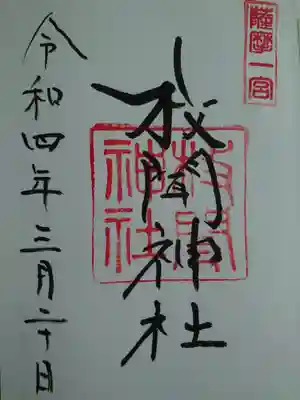 薩摩一宮
枚聞神社
枚聞神社
令和四年三月二十日